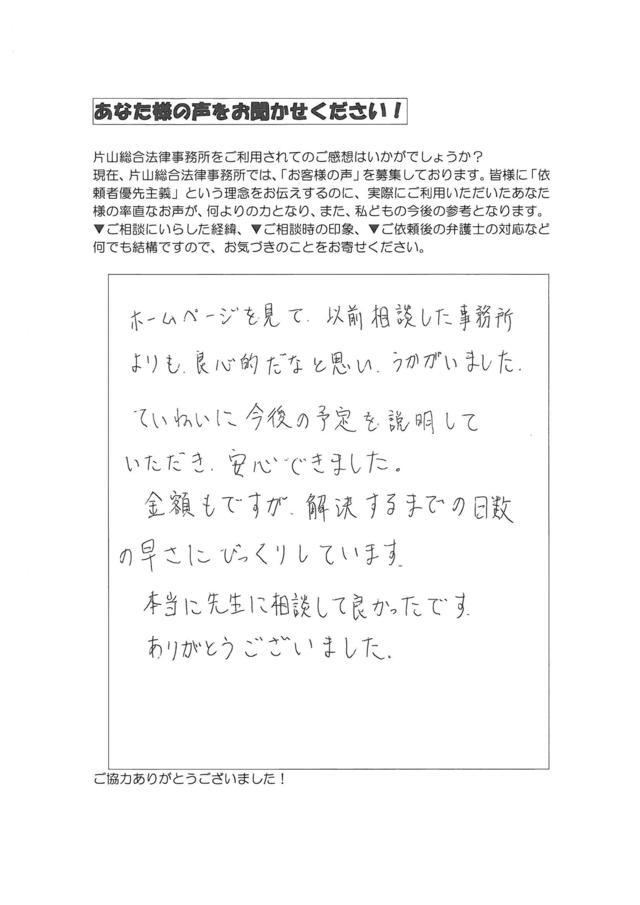 あなた様の声をお聞かせください！
片山総合法律事務所をご利用されてのご感想はいかがでしょうか？
現在、片山総合法律事務所では、「お客様の声」を募集しております。皆様に「依
頼者優先主義」という理念をお伝えするのに、実際にご利用いただいたあなた
様の率直なお声が、何よりの力となり、また、私どもの今後の参考となります。
▼ご相談にいらした経緯、▼ご相談時の印象、▼ご依頼後の弁護士の対応など
何でも結構ですので、お気づきのことをお寄せください。
ホームページを見て、以前相談した事務所
よりも、良心的だなと思い、うかがいました。
ていねいに今後の予定を説明して
いただき、安心できました。
金額もですが、解決するまでの日数
の早さにびっくりしています。
本当に先生に相談して良かったです。
ありがとうございました。
ご協力ありがとうございました！